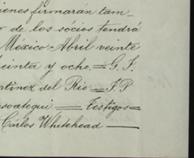 ienes firmarán tam-
o de los sócios tendrá
México Abril veinte
einta y ocho = G. F.
artinez del Rio = J. P
soategui = Testigos
Carlos Whitehead